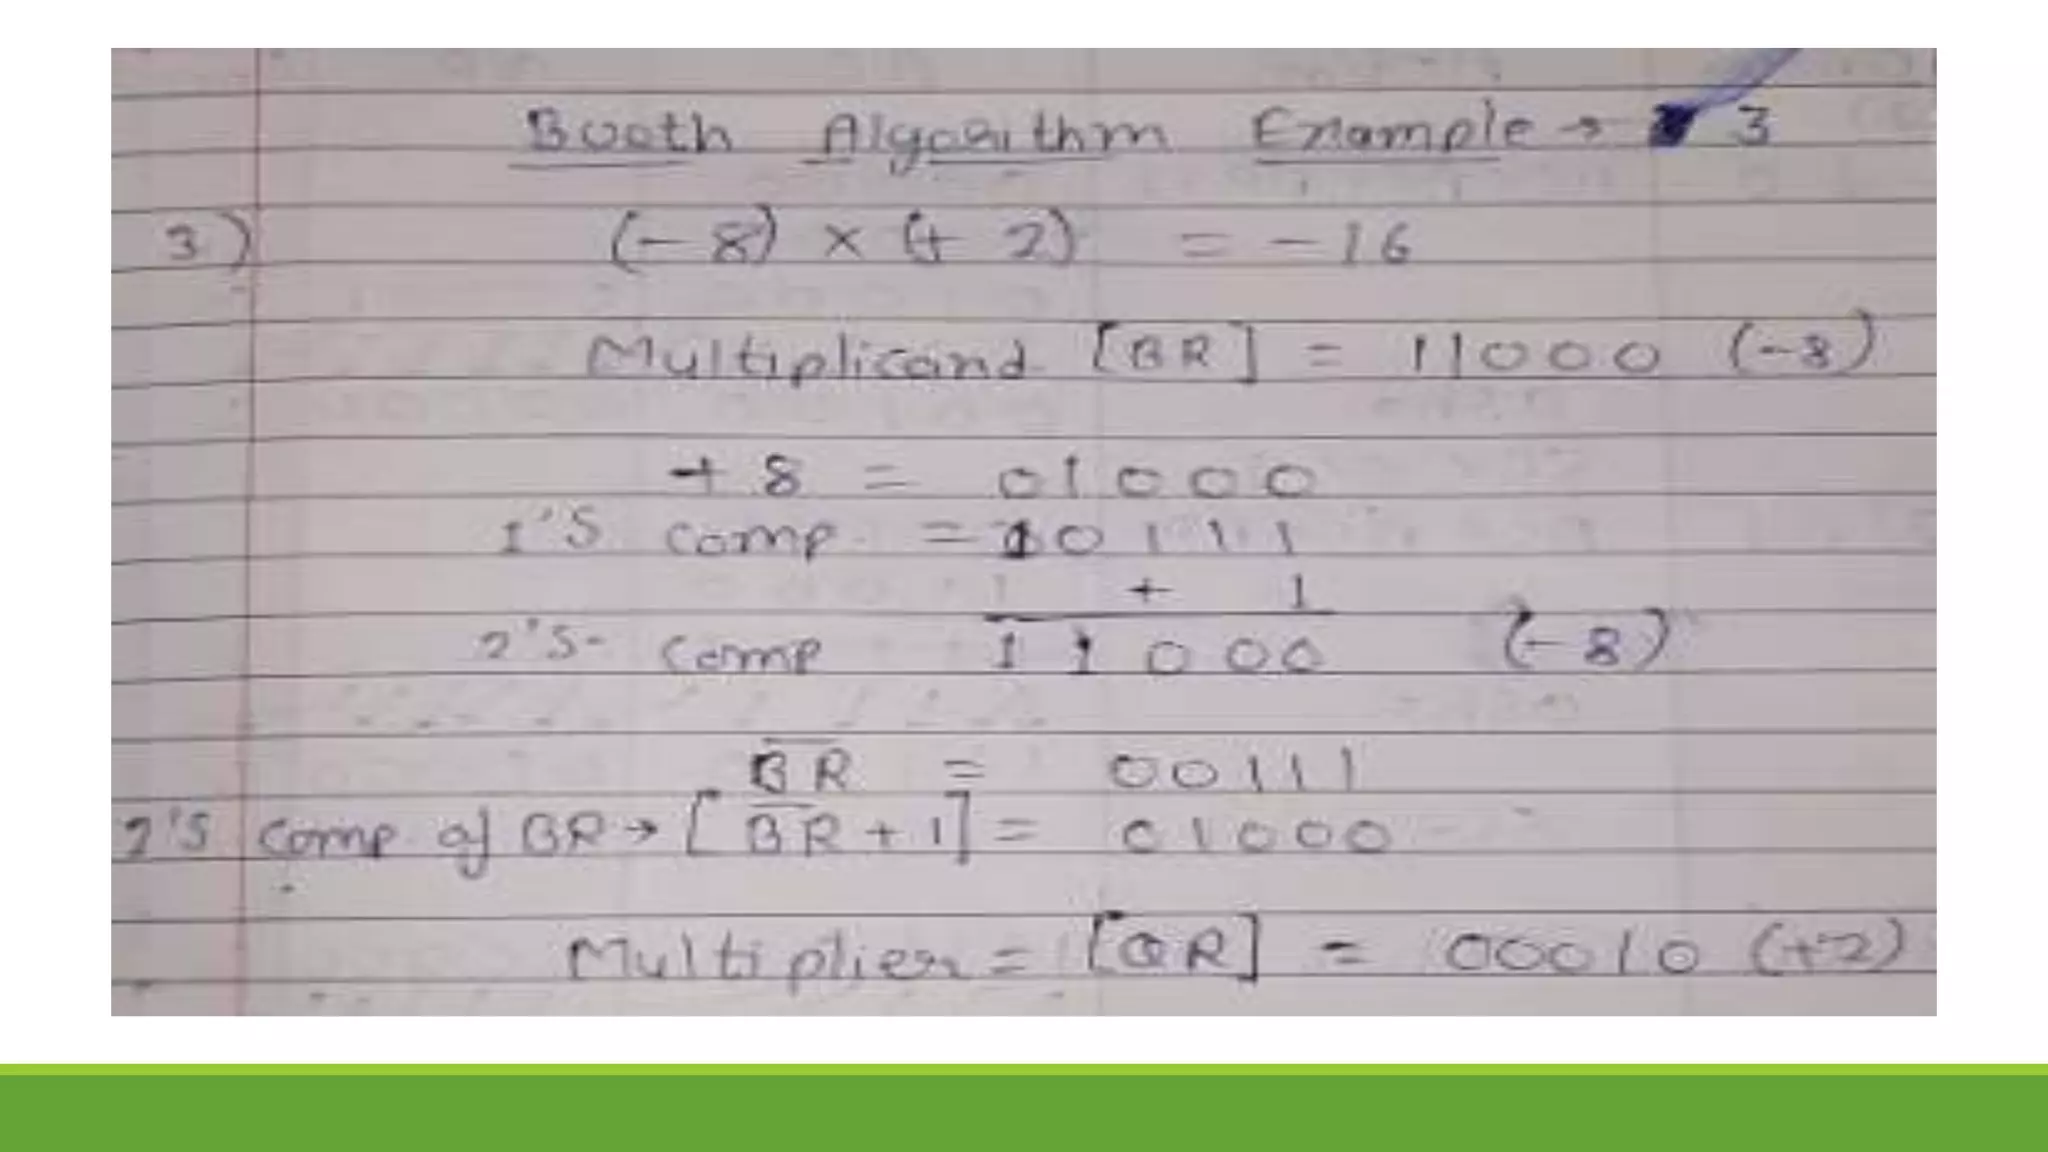 Booth Algorithm Example → 3
3) (-8) × (+ 2) = -16
Multiplicand [BR] = 11000 (-8)
+ 8 = 01000
1'S comp = 10111
+ 1
2'S- comp 11000 (-8)
B̅R̅ = 00111
2'S comp. of BR → [B̅R̅ + 1] = 01000
Multiplier = [QR] = 00010 (+2)